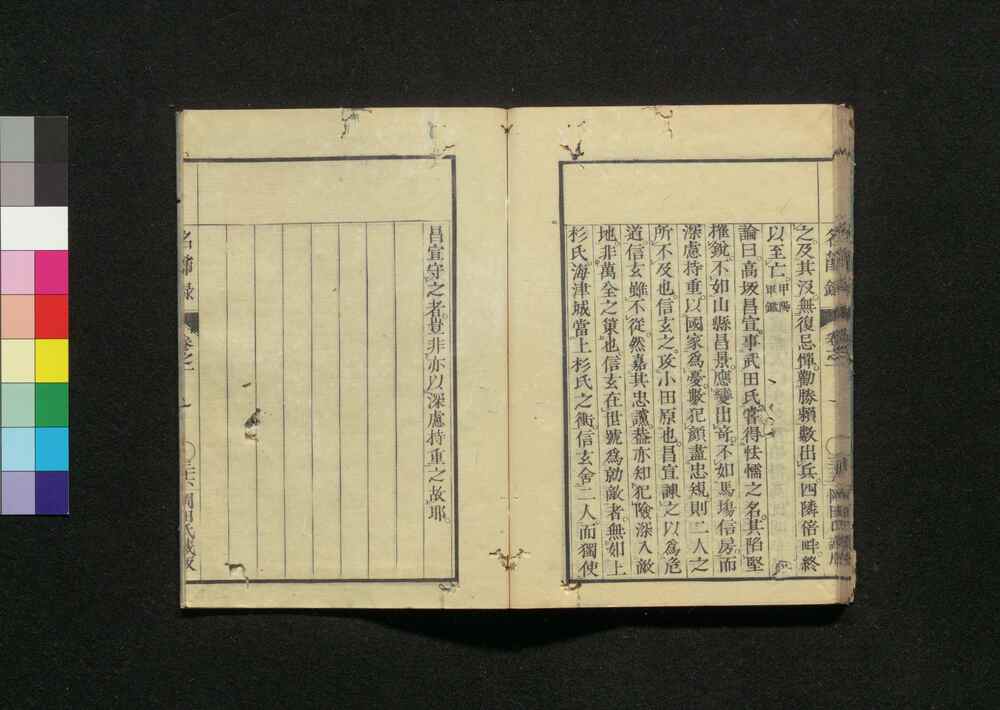 之及其沒。無復忌憚。勸勝賴數出兵。四隣倍畔。終
以至亡。甲陽軍鑑
論曰。高坂昌宣。事武田氏。嘗得怯懦之名。其陷堅
摧銳。不如山縣昌景。應變出奇。不如馬場信房。而
深慮持重。以國家爲憂。數犯顏盡忠規。則二人之
所不及也。信玄之攻小田原也。昌宣諫之以爲危
道。信玄雖不從。然嘉其忠讜。葢亦知犯險深入敵
地。非萬全之策也。信玄在世。號爲勍敵者。無如上
杉氏。海津城當上杉氏之衝。信玄舍二人。而獨使
昌宣守之者。豈非亦以深慮持重之故耶。
名節錄
卷之一
岡田氏藏板